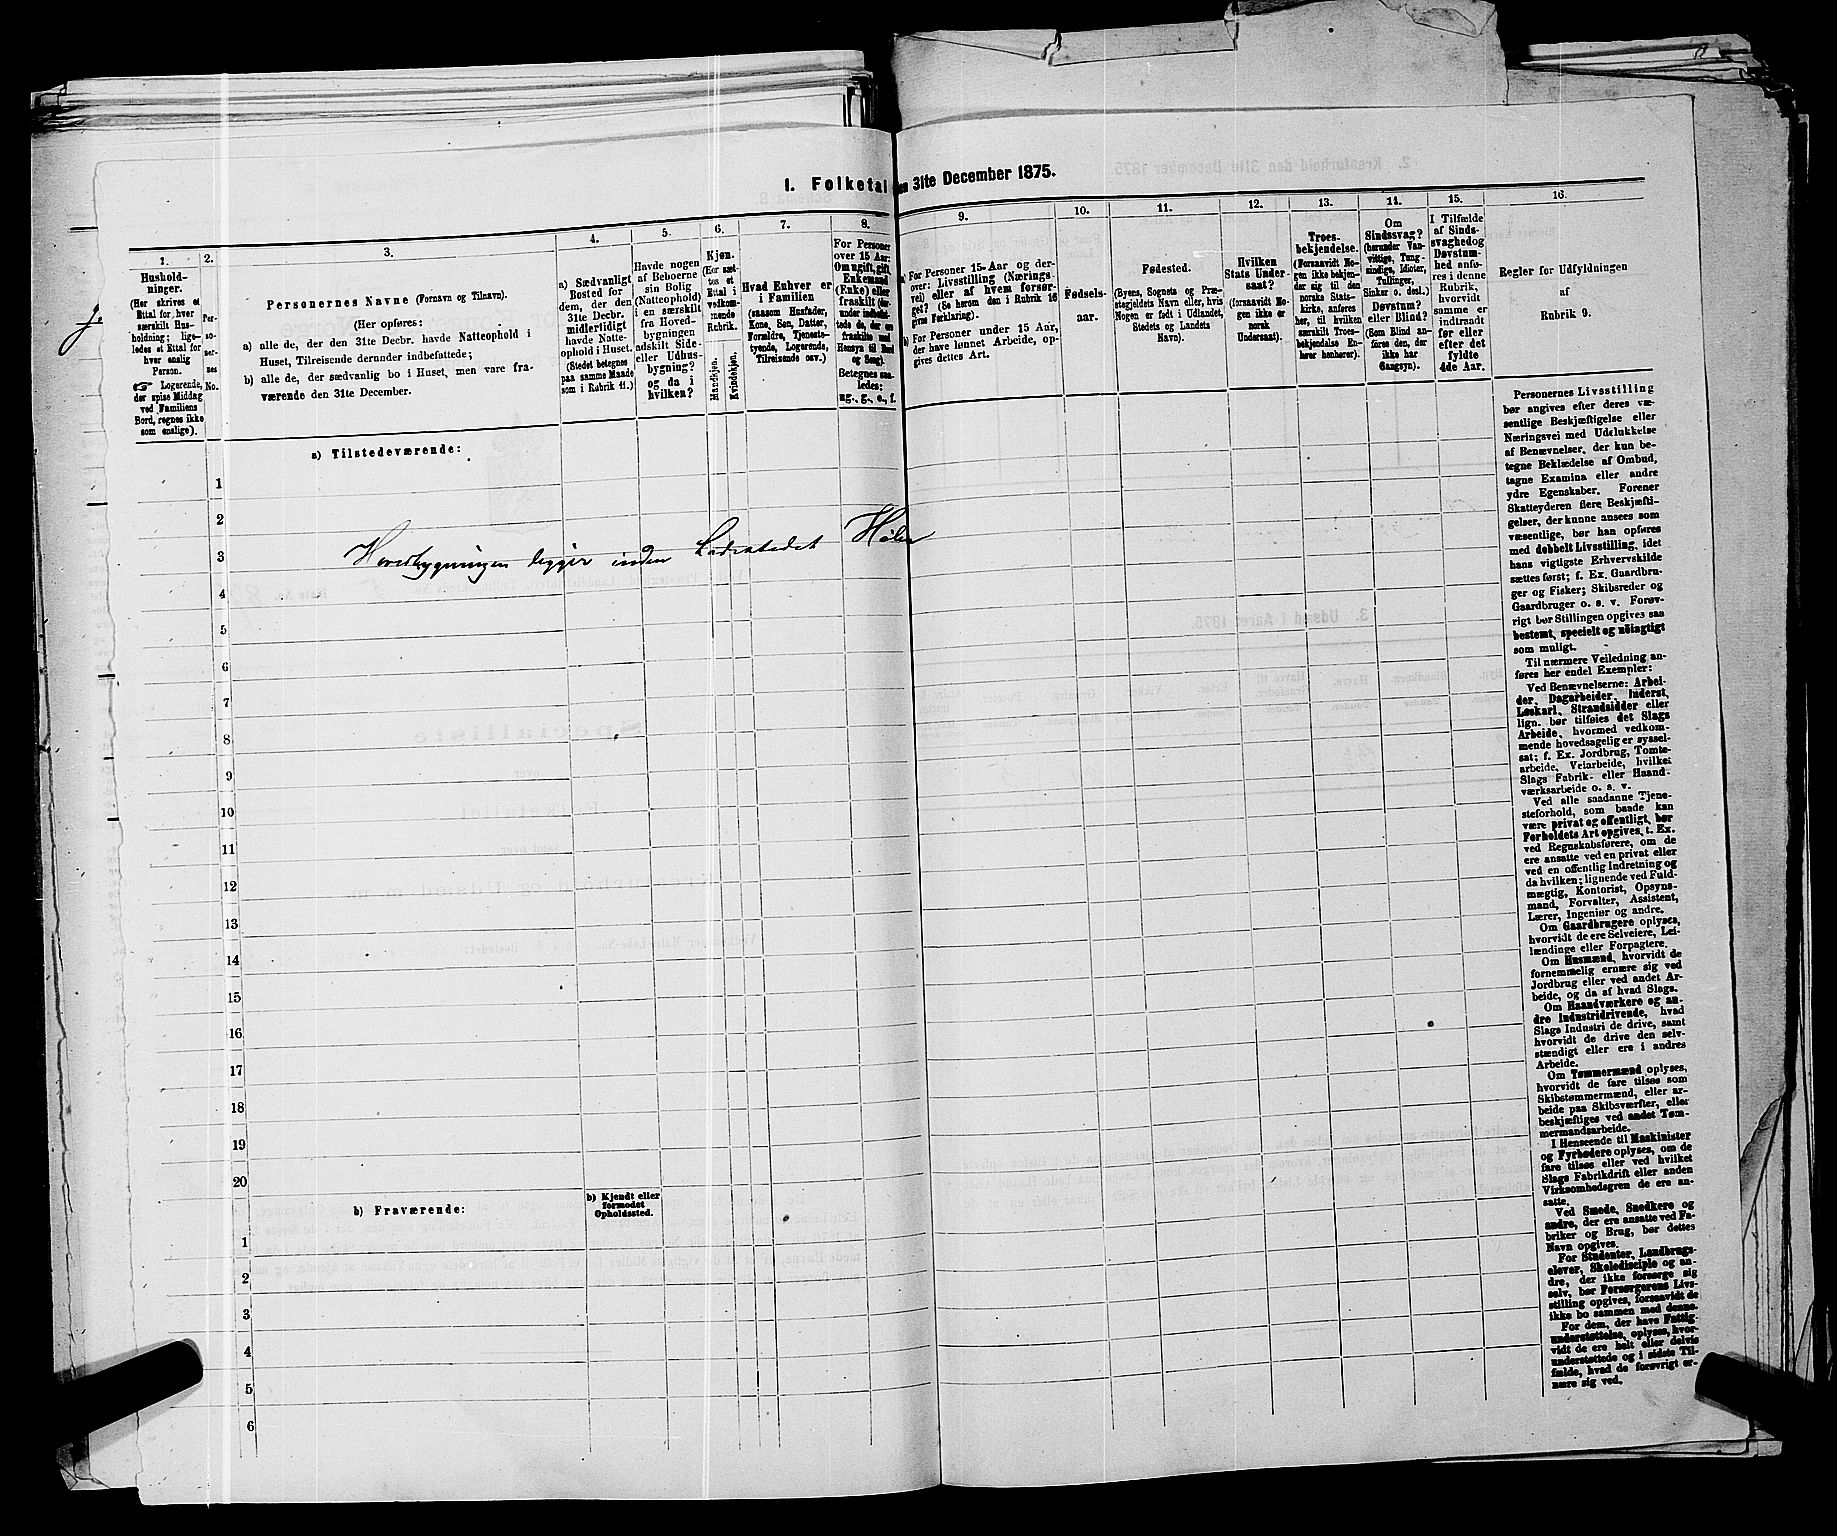 I. Folketal den 31te December 1875.
1.
2.
3.
4.
5.
6.
7.
8.
9.
10.
11.
12.
13.
14.
15.
16.
Hushold-
ninger.
(Her skrives et
Ettal for hver
særskilt Hus-
holdning; lige-
ledes et Ettal for
hver enslig
Person.
☞ Logerende,
der spise Middag
ved Familiens
Bord, regnes ikke
som enslige).
Per-
so-
ner-
nes
No.
Personernes Navne (Fornavn og Tilnavn).
(Her opføres:
a) alle de, der den 31te Decbr. havde Natteophold i
Huset, Tilreisende derunder indbefattede;
b) alle de, der sædvanlig bo i Huset, men vare fra-
værende den 31te December.
a) Sædvanligt
Bosted for
dem, der den
31te Decbr.
midlertidigt
havde Natte-
ophold i Huset.
(Stedet betegnes
paa samme Maade
som i Rubrik 11.)
Havde nogen
af Beboerne
sin Bolig
(Natteophold)
i en særskilt
fra Hoved-
bygningen
adskilt Side-
eller Udhus-
bygning?
og da i
hvilken?
Kjøn.
(Her sæt-
tes et
Ettal i
vedkom-
mende
Rubrik.
Mandkjøn.
Kvindekjøn.
Hvad Enhver er
i Familien
(saasom Husfader,
Kone, Søn, Datter,
Forældre, Tjenesty-
tyende, Logerende,
Tilreisende osv.)
For Personer
over 15 Aar:
Om ugift, gift,
Enkemand
(Enke) eller
fraskilt (der-
under indbefat-
tede de, der ere
fraskilte med
Hensyn til Bord
og Seng).
Betegnes saa-
ledes:
ug., g., e., f.
a) For Personer 15-Aar og der-
over: Livsstilling (Nærings-
vei) eller af hvem forsør-
get? (Se herom den i Rubrik 16
givne Forklaring).
b) For Personer under 15 Aar,
der have lønnet Arbeide, op-
gives dettes Art.
Fødsels-
aar.
Fødested.
(Byens, Sognets og Præ-
stegjeldets Navn eller, hvis
Nogen er født i Udlandet,
Stedets og Landets
Navn).
Hvilken
Stats Under-
saat?
(forsaavidt No-
gen ikke er
norsk
Undersaat).
Troes-
bekjendelse.
(Forsaavidt No-
gen ikke bekjen-
der sig til den
norske Stats-
kirke, anføres
her, til hvilken
særskilt Troes-
bekjendelse En-
hver henhører).
Om
Sindssvag?
(herunder Van-
vittige, Tung-
sindige, Idioter,
Tullinger,
Sinker o. desl.)
Døvstum?
eller Blind?
(Som Blind an-
føres den, der
ikke har
Gangsyn).
I Tilfælde
af Sinds-
svaghedog
Døvstum-
hed anfø-
res i denne
Rubrik,
hvorvidt
samme er
indtraadt
før eller
efter det
fyldte
4de Aar.
Regler for Udfyldningen
af
Rubrik 9.
a) Tilstedeværende:
1
2
3
Hovedbygningen ligger inden Ladestedet Hølen
4
5
6
7
8
9
10
11
12
13
14
15
16
17
18
19
20
b) Fraværende:
b) Kjendt eller
formodet
Opholdssted.
1
2
3
4
5
6
Personernes Livsstilling
bør angives efter deres væ-
sentlige Beskjæftigelse eller
Næringsvei med Udelukkelse
af Benævnelser, der kun be-
tegne Beklædelse af Ombud,
tagne Examina eller andre
ydre Egenskaber. Forener
Skatteyderen flere Beskjæfti-
gelser, der kunne ansees som
væsentlige, bør han opføres
med dobbelt Livsstilling, idet
hans vigtigste Erhvervskilde
sættes først; f. Ex. Gaardbru-
ger og Fisker; Skibsreder og
Gaardbruger o. s. v. Forøv-
rigt bør Stillingen opgives saa
bestemt, specielt og nöiagtigt
som muligt.
Til nærmere Veiledning an-
føres her endel Exempler:
Ved Benævnelserne: Arbei-
der, Dagarbeider, Inderst,
Løskarl, Strandsidder eller
lign. bør tilføies det Slags
Arbeide, hvormed vedkom-
mende hovedsagelig er syssel-
sat; f. Ex. Jordbrug, Tomte-
arbeide, Veiarbeide, hvilket
Slags Fabrik- eller Haand-
værksarbeide o. s. v.
Ved alle saadanne Tjene-
steforhold, som baade kan
være privat og offentligt, bør
Forholdets Art opgives, t. Ex.
ved Regnskabsførere, om de
ere ansatte ved en privat eller
ved en offentlig Indretning og
da hvilken; lignende ved Fuld-
mægtig, Kontorist, Opsyns-
mand, Forvalter, Assistent,
Lærer, Ingeniør og andre.
Om Gaardbrugere oplyses,
hvorvidt de ere Selveiere, Lei-
lændinge eller Forpagtere.
Om Husmænd, hvorvidt de
fornemmelig ernære sig ved
Jordbrug eller ved andet Ar-
beide, og da af hvad Slags.
Om Haandværkere og an-
dre Industridrivende, hvad
Slags Industri de drive, samt
hvorvidt de drive den selv-
stændigt eller ere i andres
Arbeide.
Om Tømmermænd oplyses,
hvorvidt de fare tilsøs som
Skibstømmermænd, eller ar-
beide paa Skibsværfter, eller
beskjæftiges ved andet Tøm-
mermandsarbeide.
I Henseende til Maskinister
og Fyrbødere oplyses, om de
fare tilsøs eller ved hvilket
Slags Fabrikdrift eller anden
Virksomhedsgren de ere an-
satte.
Ved Smede, Snedkere og
andre, der ere ansatte ved Fa-
briker og Brug, bør dettes
Navn opgives.
For Studenter, Landbrugs-
elever, Skoledisciple og an-
dre, der ikke forsørge sig
selv, bør Forsørgerens Livs-
stilling opgives, forsaavidt de
ikke bo sammen med denne.
For dem, der have Fattig-
understøttelse, oplyses, hvor-
vidt de ere helt eller delvis
understøttede og i sidste Til-
fælde, hvad de forøvrigt er-
nære sig ved.